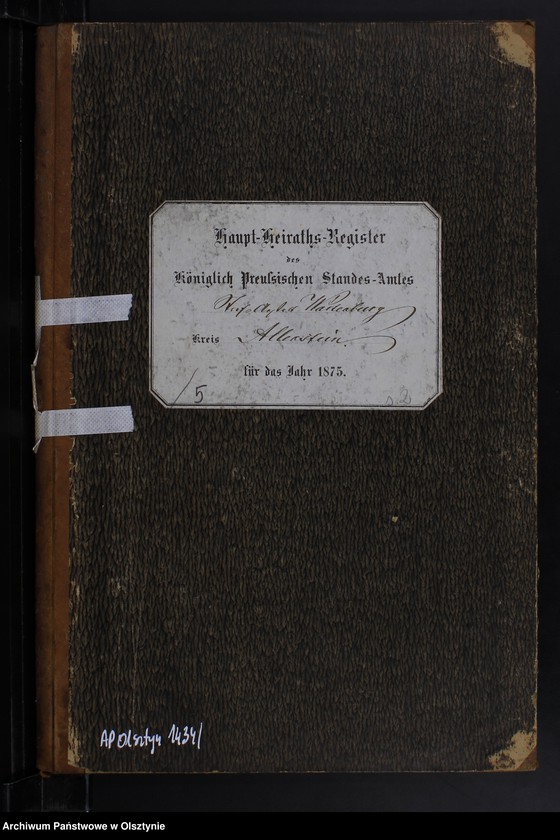 Haupt-Heiraths-Register
des
Königlich Preußischen Standes-Amtes
Wartenburg
Kreis Allenstein.
für das Jahr 1875.
/5
AP Olsztyn 1434/
Archiwum Państwowe w Olsztynie